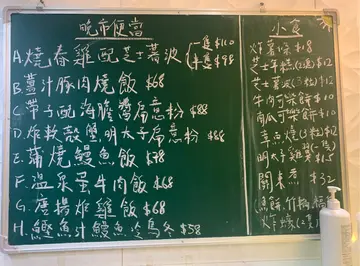 晚市便當
A.燒春雞配芝士薯波 一隻$110
半隻$98
B.薑汁豚肉燒飯 $68
C.帶子配海膽醬扁意粉 $88
D.炸軟殼蟹明太子扁意粉 $88
E.蒲燒鰻魚飯 $78
F.溫泉蛋牛肉飯 $68
G.唐揚炸雞飯 $68
H.鰹魚汁鰻魚冷烏冬 $58
小食
炸薯條 $18
芝士年糕(2條) $12
芝士薯波(3粒) $12
牛肉可樂餅 $10
南瓜可樂餅 $10
章魚燒(3粒) $12
明太子雞翼(一隻) $15
關東煮 $32
炸蠔(2隻)